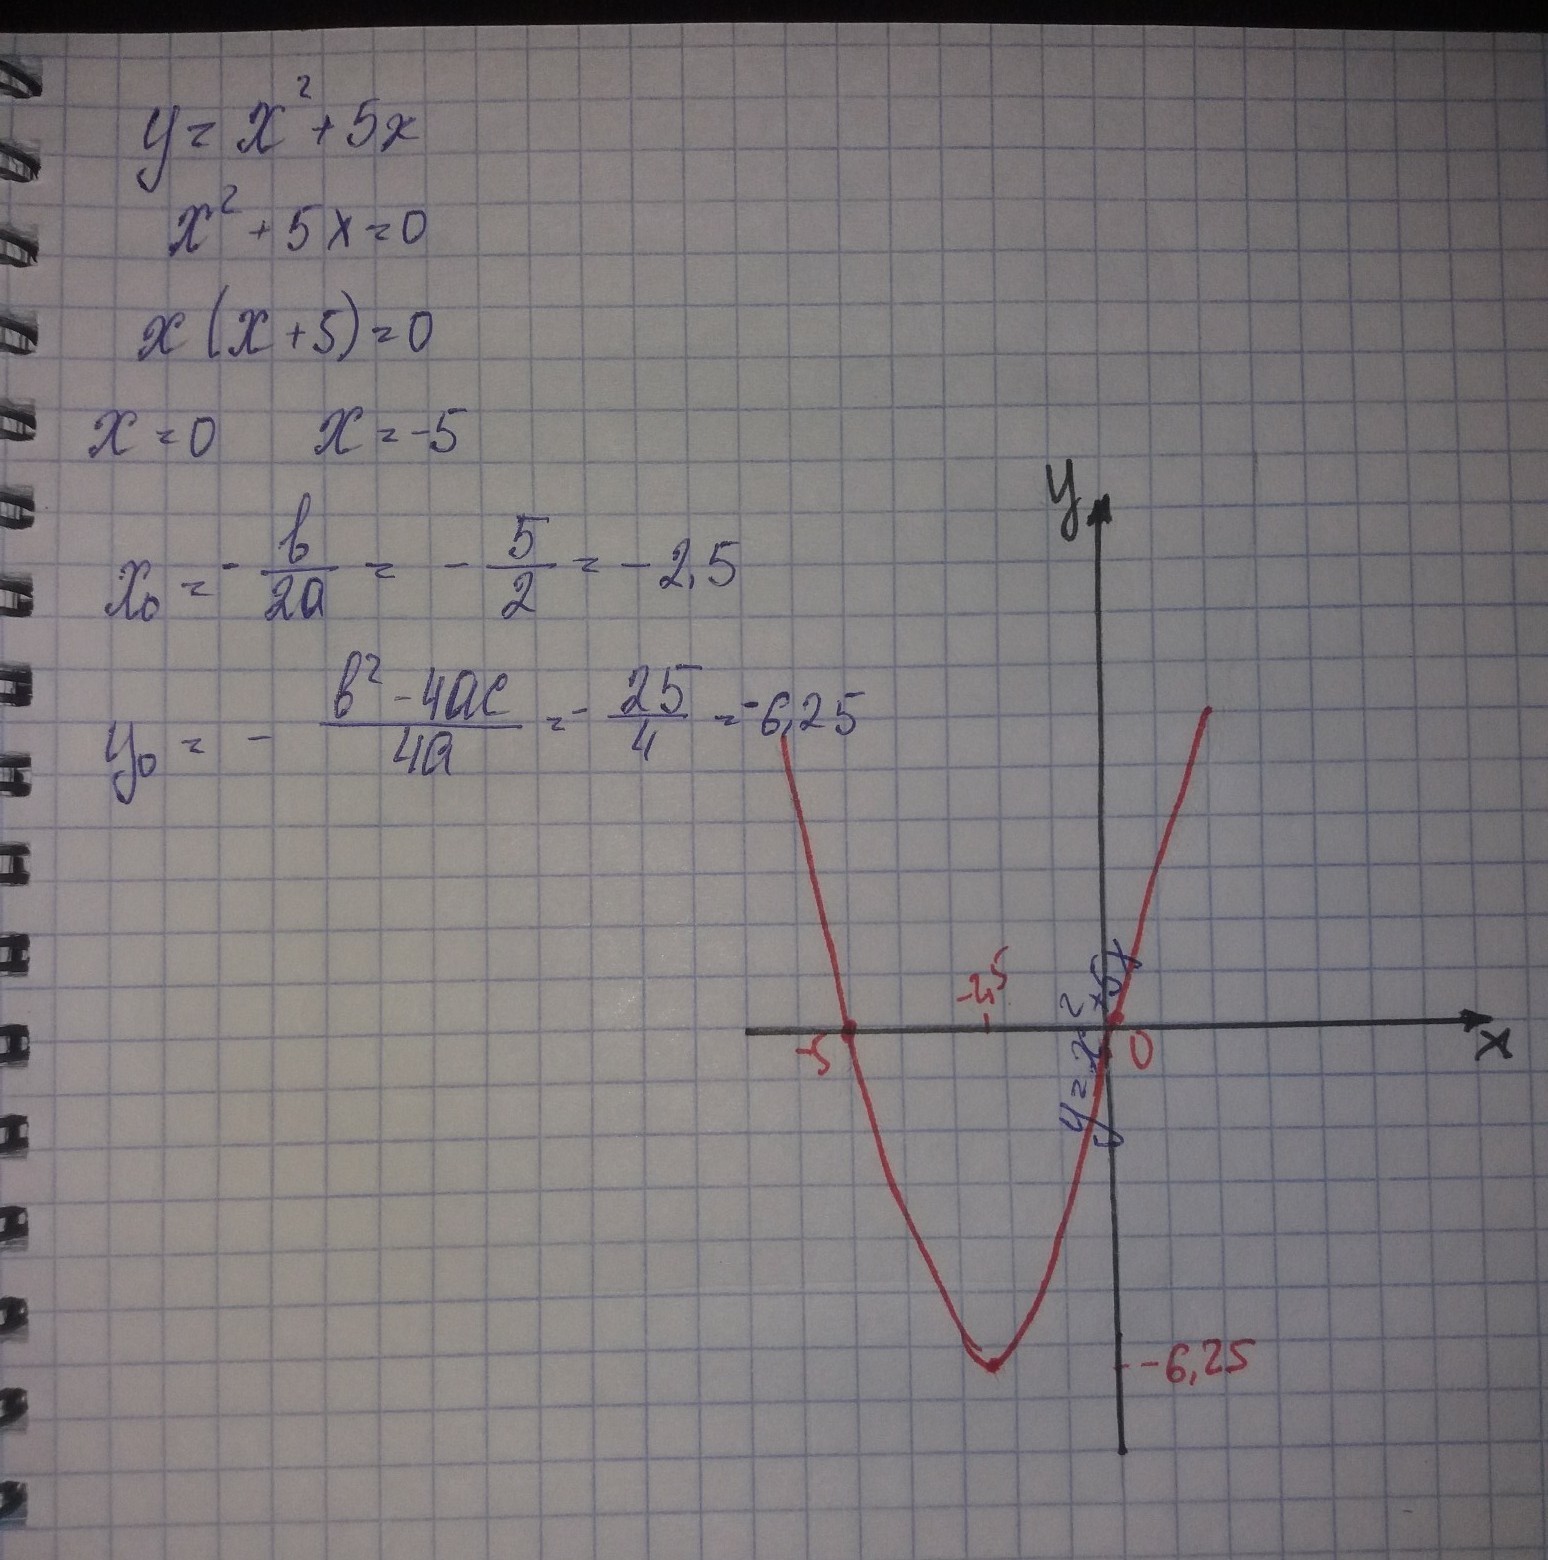 y = x² + 5x
x² + 5x = 0
x (x + 5) = 0
x = 0 x = -5
x₀ = - b/2a = - 5/2 = - 2,5
y₀ = - b² - 4ac/4a = - 25/4 = -6,25
y
-2,5
y = x² + 5x
-5
0
x
-6,25